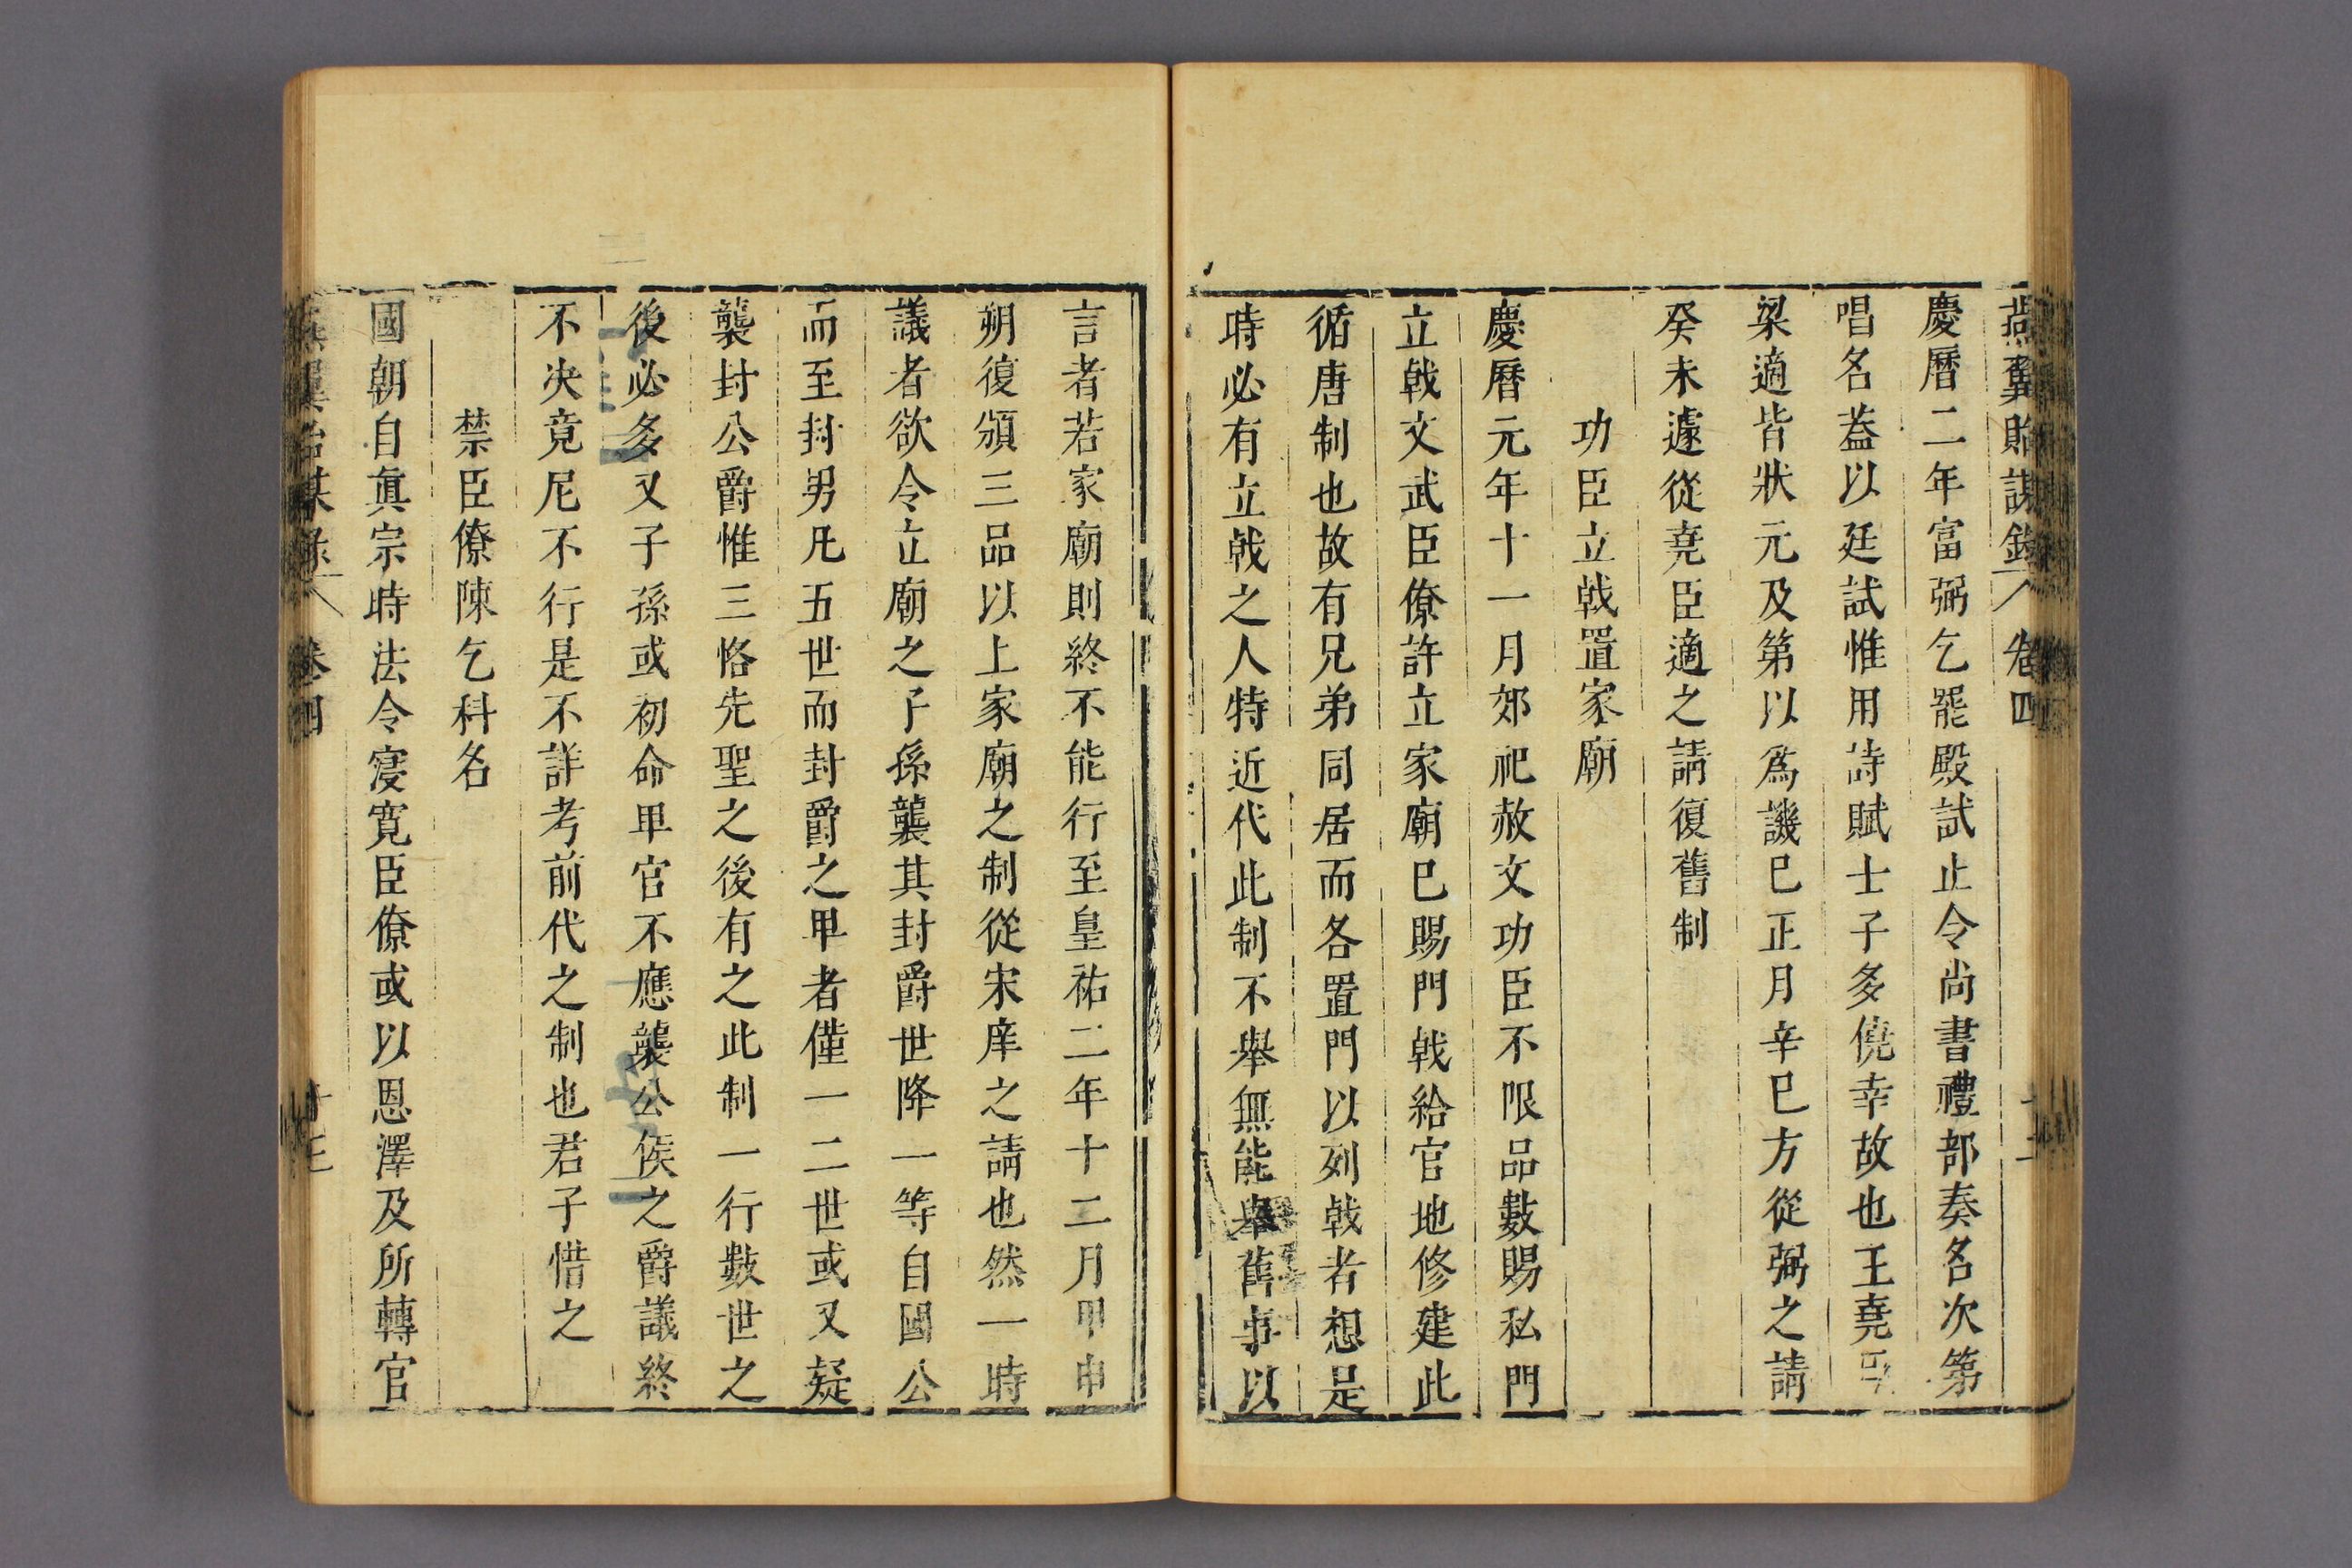 燕翼貽謀錄 卷四
慶曆二年富弼乞罷殿試止令尚書禮部奏名次第
唱名葢以廷試惟用詩賦士子多僥幸故也王堯臣
梁適皆狀元及第以爲譏巳正月辛巳方從弼之請
癸未遽從堯臣適之請復舊制
功臣立戟置家廟
慶曆元年十一月郊祀赦文功臣不限品數賜私門
立戟文武臣僚許立家廟巳賜門戟給官地修建此
循唐制也故有兄弟同居而各置門以列戟者想是
時必有立戟之人特近代此制不舉無能舉舊事以
言者若家廟則終不能行至皇祐二年十二月甲申
朔復頒三品以上家廟之制從宋庠之請也然一時
議者欲令立廟之子孫襲其封爵世降一等自國公
而至封男凡五世而封爵之卑者僅一二世或又疑
襲封公爵惟三恪先聖之後有之此制一行數世之
後必多又子孫或初命卑官不應襲公侯之爵議終
不决竟尼不行是不詳考前代之制也君子惜之
禁臣僚陳乞科名
國朝自眞宗時法令寖寬臣僚或以恩澤及所轉官
燕翼貽謀錄 卷四